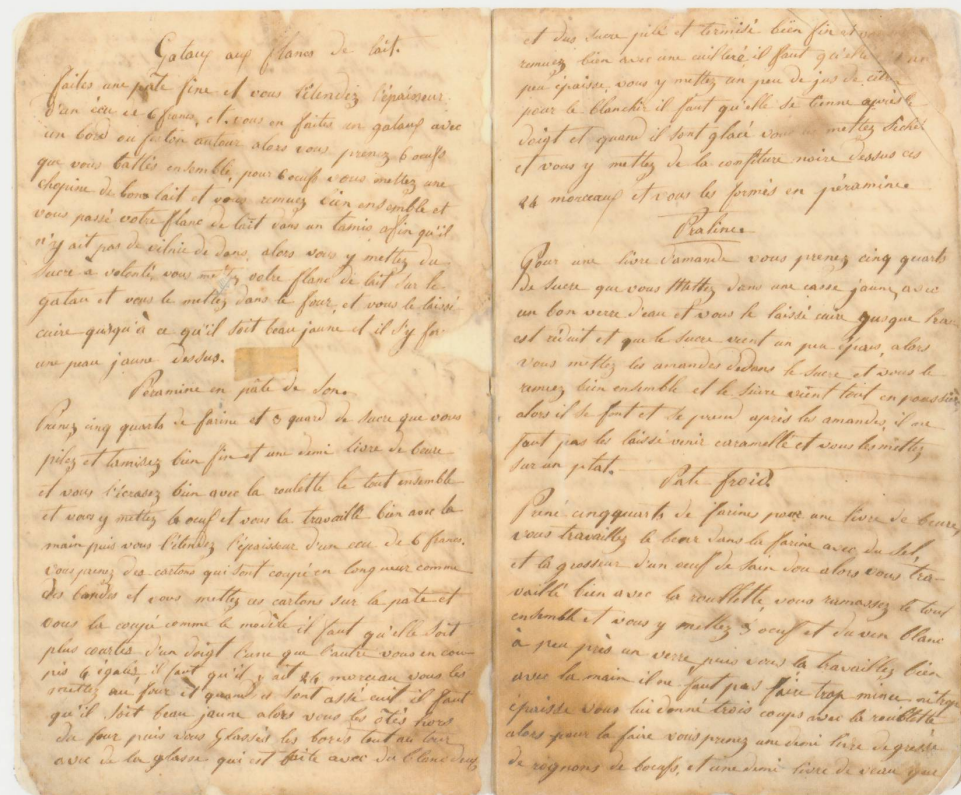 Gataux aux flancs de lait.
faites une pâte fine et vous l'étendez l'épaisseur
d'un écu de 6 francs, et vous en faites un gataux avec
un bord ou feston autour alors vous prenez 6 oeufs
que vous battés ensemble, pour 6 oeufs vous mettez une
chopine de bons lait et vous remuez bien ensemble et
vous passé votre flanc de lait dans un tamis afin qu'il
n'y ait pas de vilnie de dans, alors vous y mettez du
sucre à volonté, vous mettez votre flanc de lait sur le
gatau et vous le mettez dans le four, et vous le laissé
cuire qusqu'à ce qu'il soit beau jaune et il s'y for
une peau jaune dessus.
Péramine en pâte de Son.
Prenez cinq quarts de farine et 3 quard de sucre que vous
pilez et tamisez bien fin et une demi livre de beure
et vous l'écrasez bien avec la roulette le tout ensemble
et vous y mettez oeuf et vous la travaillé bien avec la
main puis vous l'étendez l'épaisseur d'un ecu de 6 francs.
vous prenez des cartons qui sont coupé en longueur comme
des bandes et vous mettez ces cartons sur la pate et
vous la coupé comme le modèle il faut qu'elle soit
plus courtes d'un doigt l'une que l'autre vous en cou-
pis 4 égalés il faut qu'il y ait 24 morceau vous les
mettez au four et quand ils sont assé cuit il faut
qu'il soit beau jaune alors vous les ôtés hors
du four puis vous glassés les bords tout au tour
avec de la glasse qui est faite avec du blanc deux
et dus sucre pilé et termisé bien fin et vous
remuez bien avec une cuilleré il faut qu'elle un
peu épaisse vous y mettez un peu de jus de citr
pour le blanchi il faut qu'elle se tienne après le
doigt et quand il sont glacé vous les mettez séché
et vous y mettez de la confiture noire dessus ces
24 morceaux et vous les formés en péramine.
Praline.
Pour une livre d'amande vous prenez cinq quarts
de sucre que vous Mettez dans une casse jaune, avec
un bon verre d'eau et vous le laissé cuire qusque l'eau
est réduit et que le sucre vient un peu épais, alors
vous mettez les amandes dedans le sucre et vous le
remuez bien ensemble et le sucre vient tout en poussière
alors il se font et se prend après les amandes, il ne
faut pas les laissé venir caramelle et vous les mettez
sur un plat.
Pate froid.
Préné cinq quarts de farines pour une livre de beure,
vous travaillez le beur dans la farine avec du sel,
et la grosseur d'un oeuf de sain dou alors vous tra-
vaillé bien avec la roullette, vous ramassez le tout
ensemble et vous y mettez 3 oeuf et du vin blanc
à peu près un verre, puis vous la travaillez bien
avec la main il ne faut pas faire trop mince ni trop
épaisse vous lui donné trois coups avec la roullette
alors pour la faire vous prenez une demi livre de graisse
de rognons de boeufs, et une demi livre de veau que